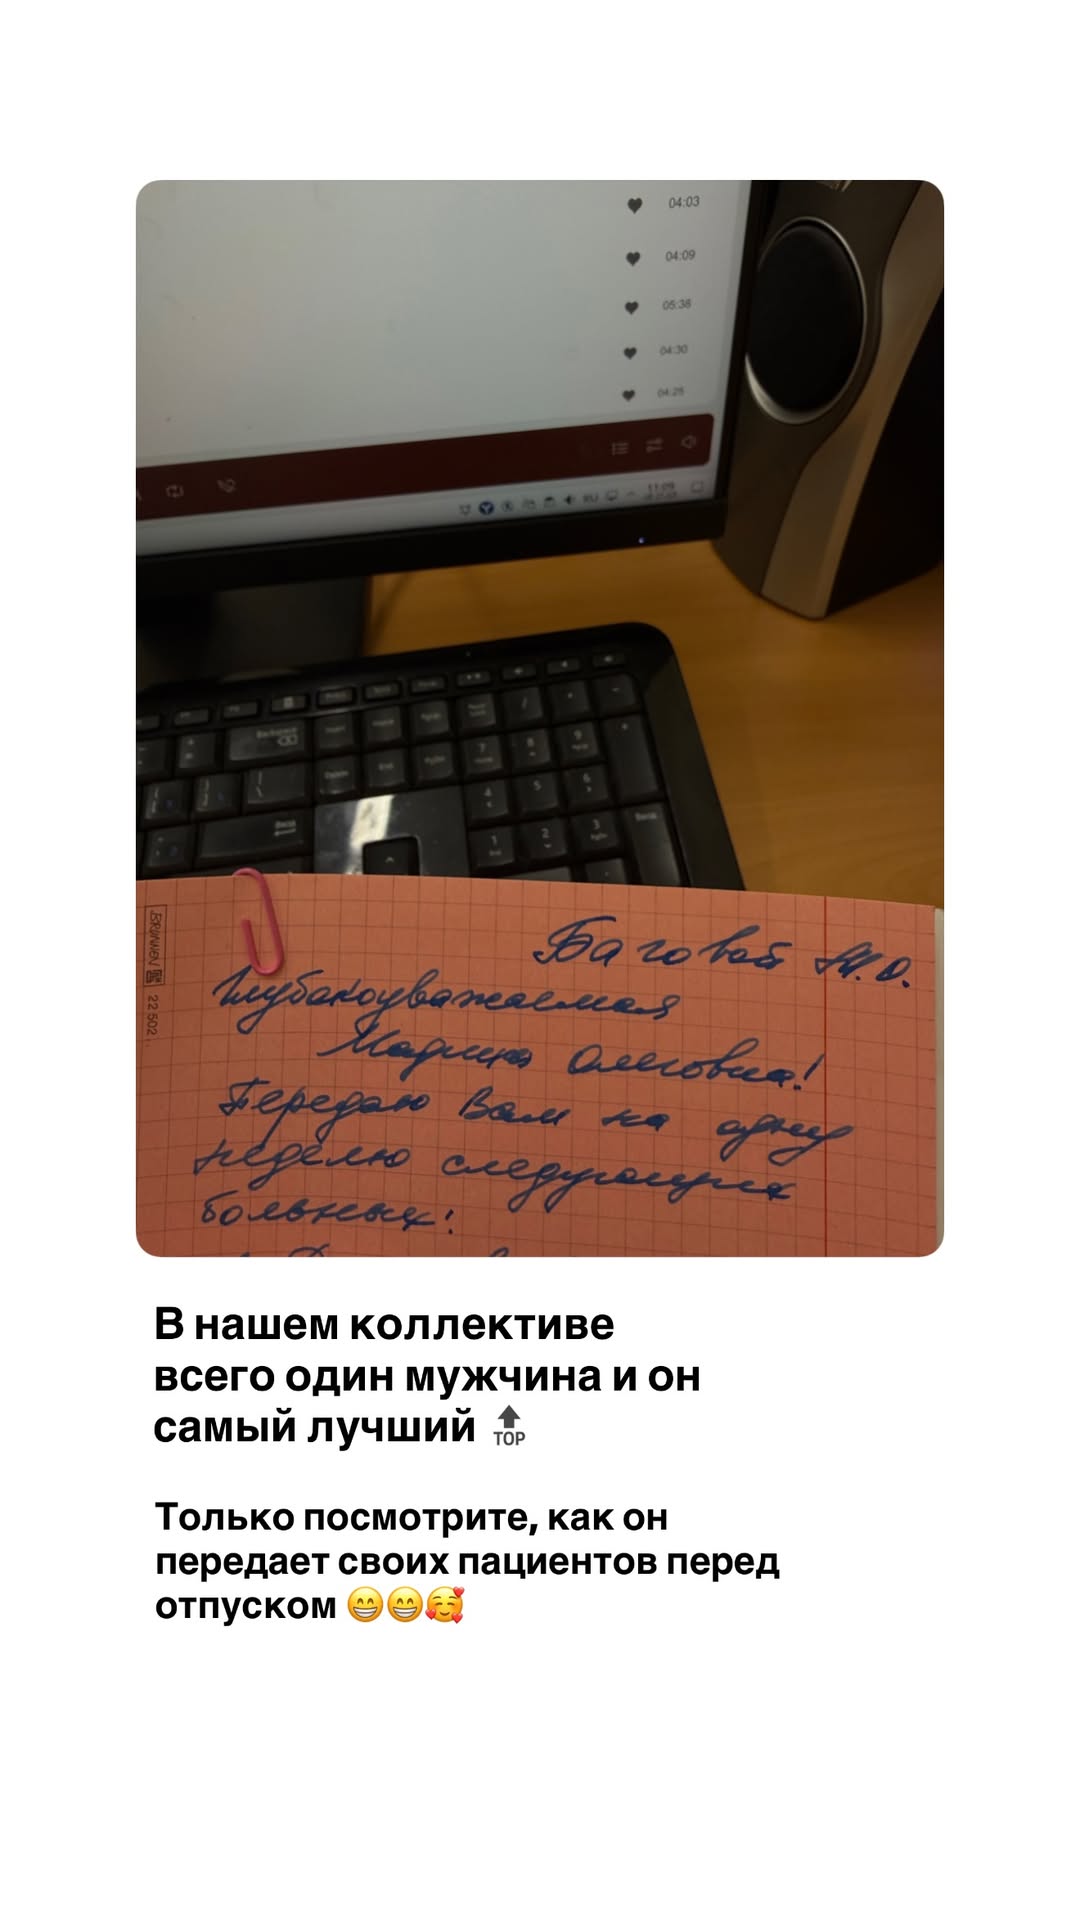 04:03
04:09
05:38
04:30
04:25
RU
11:09
7
8
9
4
5
6
1
2
3
BRUNNEN
22 502
Баговой М. О.
Глубокоуважаемая
Марина Олеговна!
Передаю Вам на одну
неделю следующих
больных:
В нашем коллективе
всего один мужчина и он
самый лучший 🔝
Только посмотрите, как он
передает своих пациентов перед
отпуском 😁😁🥰